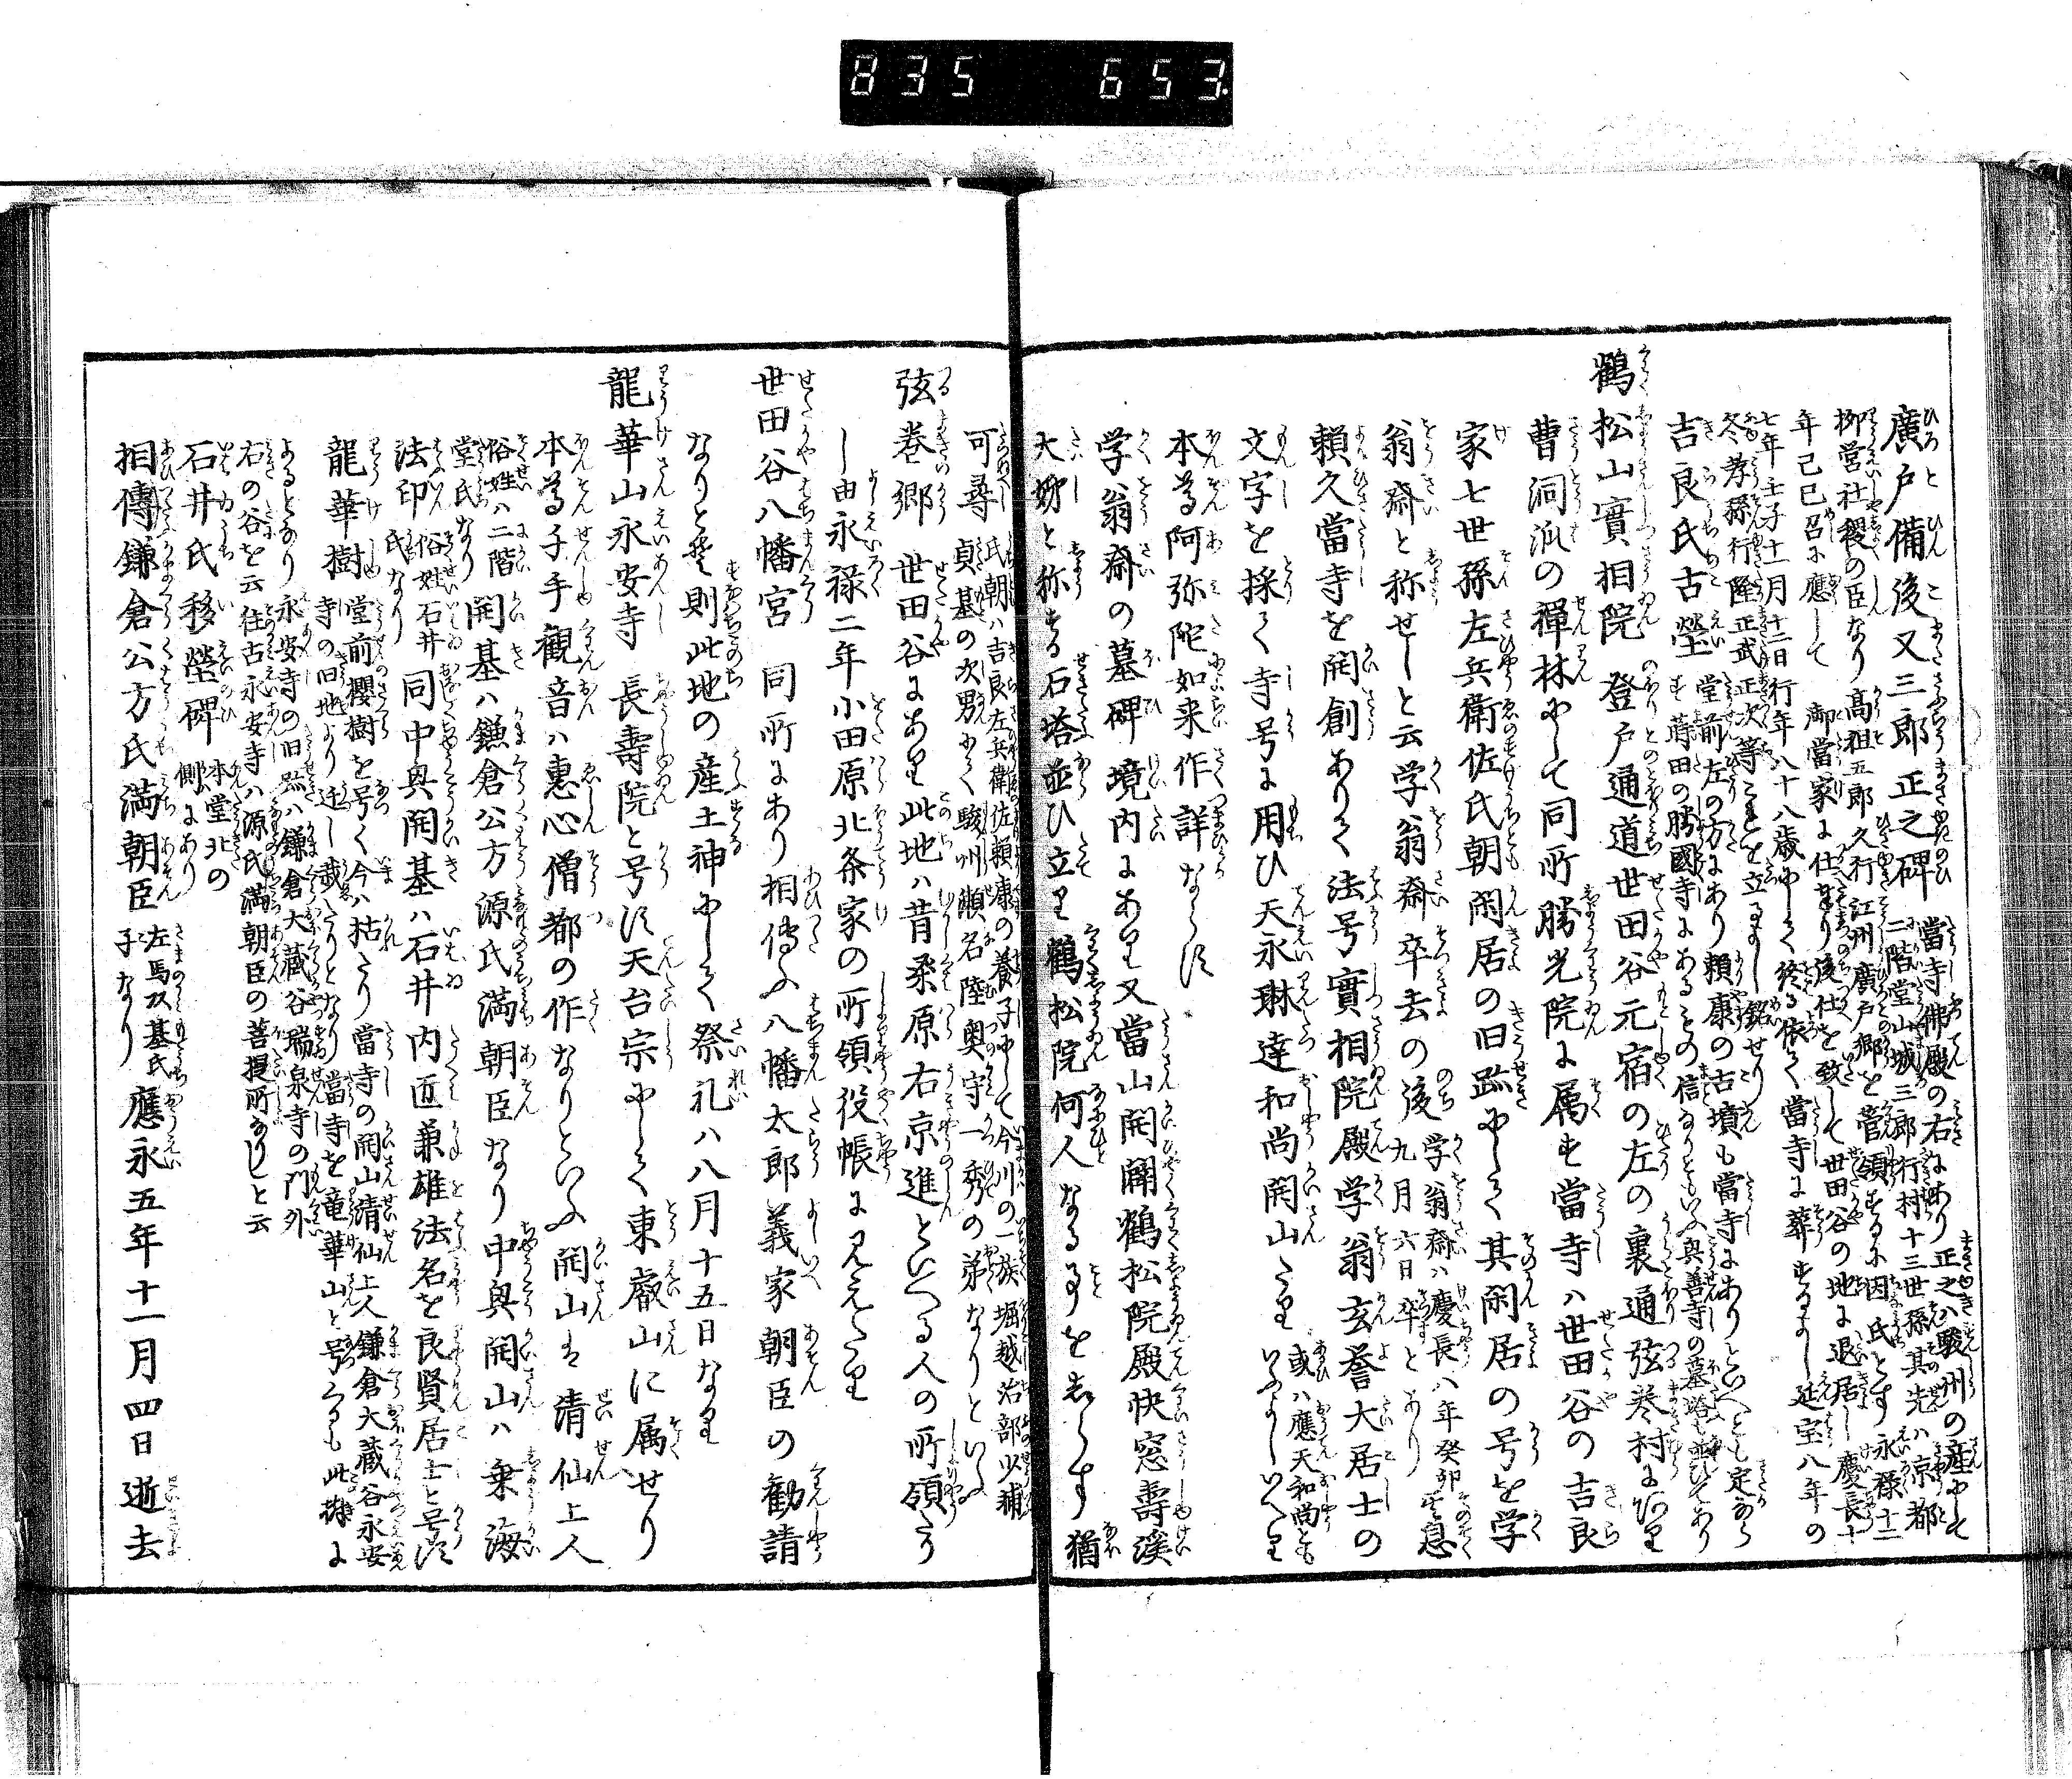 835 653
廣戸備後又三郎正之碑 當寺佛殿の右にあり正之ハ駿州の産にして
二階堂山城三郎行村十三世孫其先ハ京都
柳営社稷の臣なり高祖五郎久行江州廣戸郷を菅領するに因氏とす永禄十二
年己巳召に應して 御當家に仕奉り後仕を致して世田谷の地に退居し慶長十
七年壬子十一月十二日行年八十八歳にて終る依て當寺に葬するよし延宝八年の
冬孝孫行隆正武正次等これを立るよし銘せり
吉良氏古塋 堂前左の方にあり頼康の古墳も當寺にありといへとも定かならす
蒔田の勝國寺にあるもの信なりともいふ奥善寺の墓塔も並ひてあり
鶴松山實相院 登戸通道世田谷元宿の左の裏通弦巻村にあり
曹洞派の禅林にして同所勝光院に属す當寺ハ世田谷の吉良
家七世孫左兵衛佐氏朝閑居の旧跡にして其閑居の号を学
翁齋と称せしと云学翁齋卒去の後 学翁齋ハ慶長八年癸卯九月六日卒とあり 其息
頼久當寺を開創ありて法号實相院殿学翁玄誉大居士の
文字を採て寺号に用ひ天永琳達和尚開山たり 或ハ應天和尚ともいふよしいへり
本尊阿弥陀如来作詳ならす
学翁齋の墓碑境内にあり又當山開闢鶴松院殿快窓壽渓
大姉と称する石塔並ひ立り鶴松院何人なる事をしらす猶
可尋 氏朝ハ吉良左兵衛佐頼康の養子にして今川の一族堀越治部少輔
貞基の次男にて駿州瀬名陸奥守一秀の弟なりといふ
弦巻郷 世田谷にあり此地ハ昔桑原右京進といへる人の所領たり
し由永禄二年小田原北条家の所領役帳に見えたり
世田谷八幡宮 同所にあり相傳ふ八幡太郎義家朝臣の勧請
なりと云則此地の産土神にして祭礼ハ八月十五日なり
龍華山永安寺 長壽院と号す天台宗にして東叡山に属せり
本尊千手観音ハ恵心僧都の作なりといふ開山を清仙上人
俗姓ハ二階堂氏なり 開基ハ鎌倉公方源氏満朝臣なり中興開山ハ乗海
法印 俗姓石井氏なり 同中興開基ハ石井内匠兼雄法名を良賢居士と号す
龍華樹 堂前櫻樹を号く今ハ枯たり當寺の開山清仙上人鎌倉大蔵谷永安
寺の旧地より迁し栽たりとなり當寺を竜華山と号るも此樹に
よるとなり永安寺の旧跡ハ鎌倉大蔵谷瑞泉寺の門外
右の谷を云往古永安寺ハ源氏満朝臣の菩提所なりしと云
石井氏移塋碑 本堂北の側にあり
相傳鎌倉公方氏満朝臣 左馬頭基氏子なり 應永五年十一月四日逝去